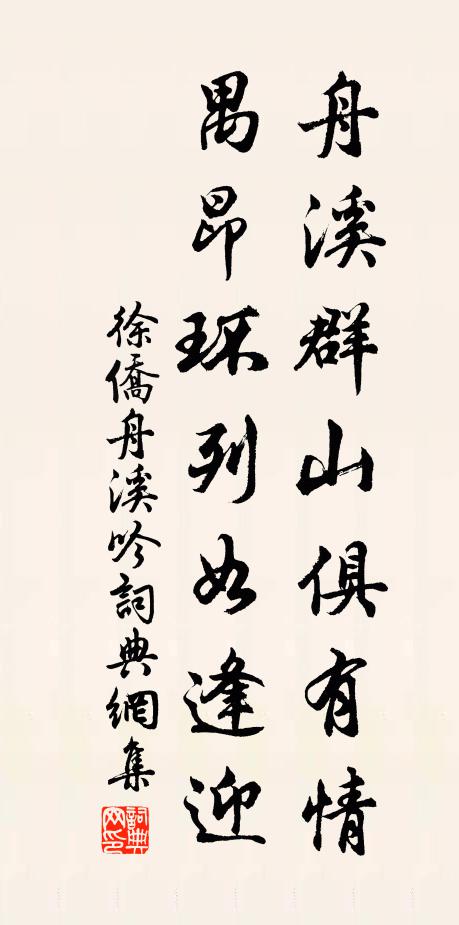 舟溪群山俱有情
禺昂环列如逢迎
徐僑舟溪吟詞典網集
詞典网印